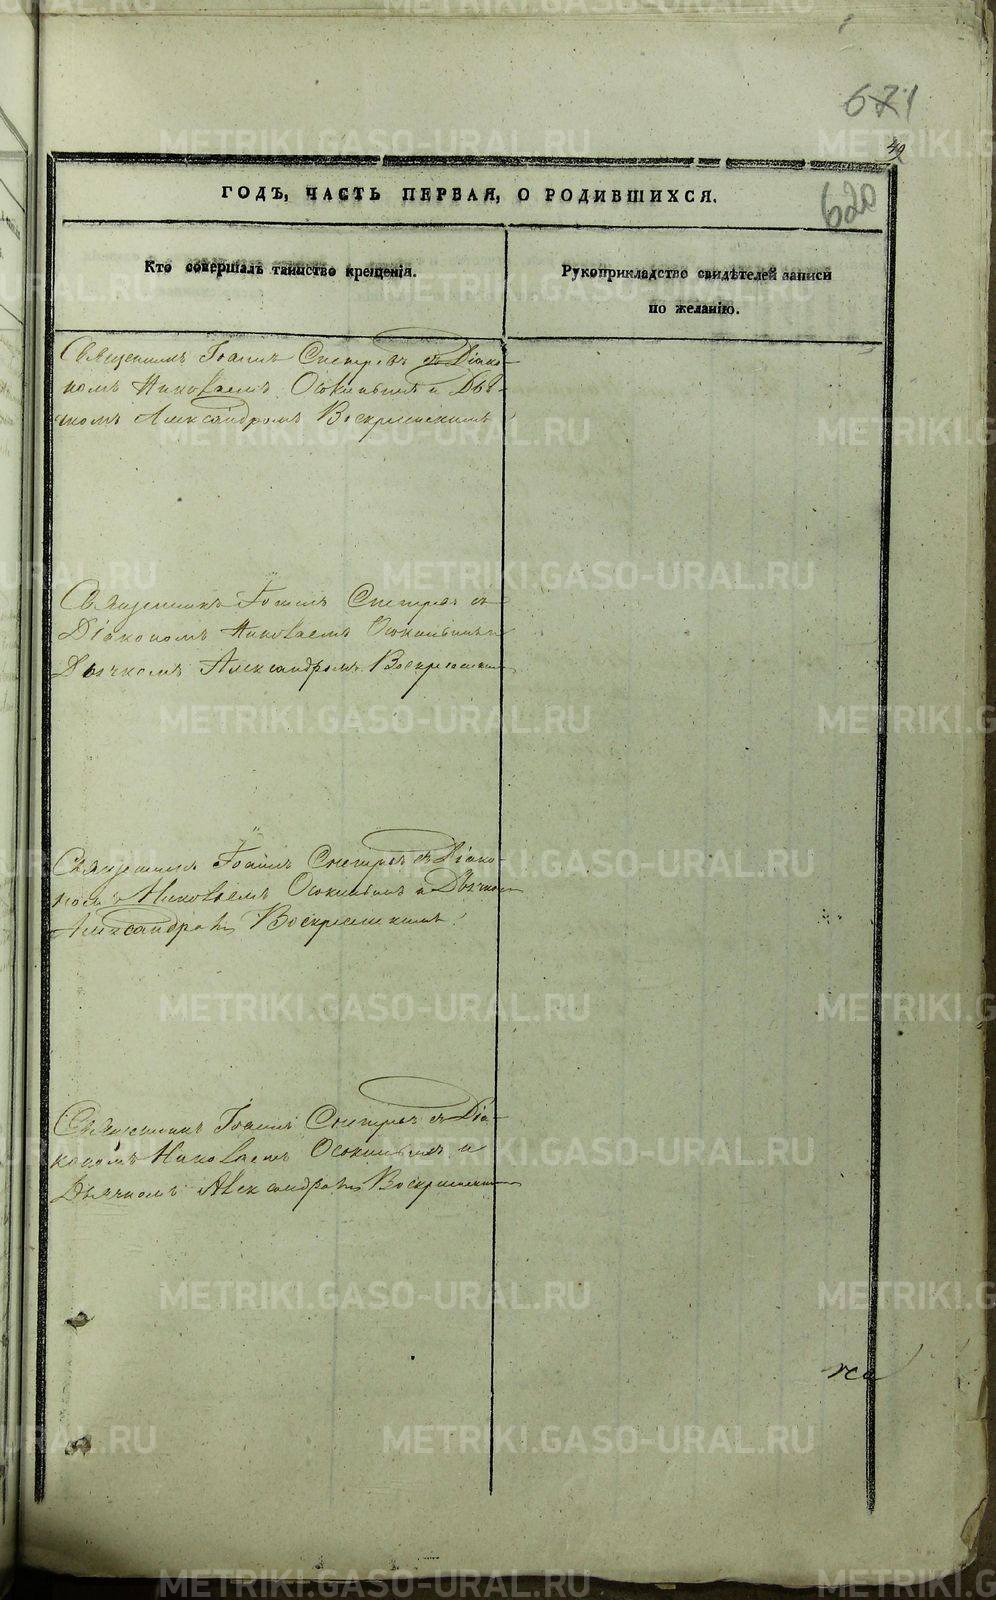 671
49
620
ГОДЪ, ЧАСТЬ ПЕРВАЯ, О РОДИВШИХСЯ.
Кто совершалъ таинство крещенія.
Рукоприкладство свидѣтелей записи
по желанію.
Священникъ Іоаннъ съ Діако-
номъ Николаемъ Осокинымъ и Дья-
чкомъ Александромъ Воскресенскимъ
Священникъ Іоаннъ съ
Діакономъ Николаемъ Осокинымъ и
Дьячкомъ Александромъ Воскресенским
Священникъ Іоаннъ съ Діако-
номъ Николаемъ Осокинымъ и Дьячком
Александромъ Воскресенскимъ
Священникъ Іоаннъ съ Діа-
кономъ Николаемъ Осокинымъ и
Дьячкомъ Александромъ Воскресенским
METRIKI.GASO-URAL.RU